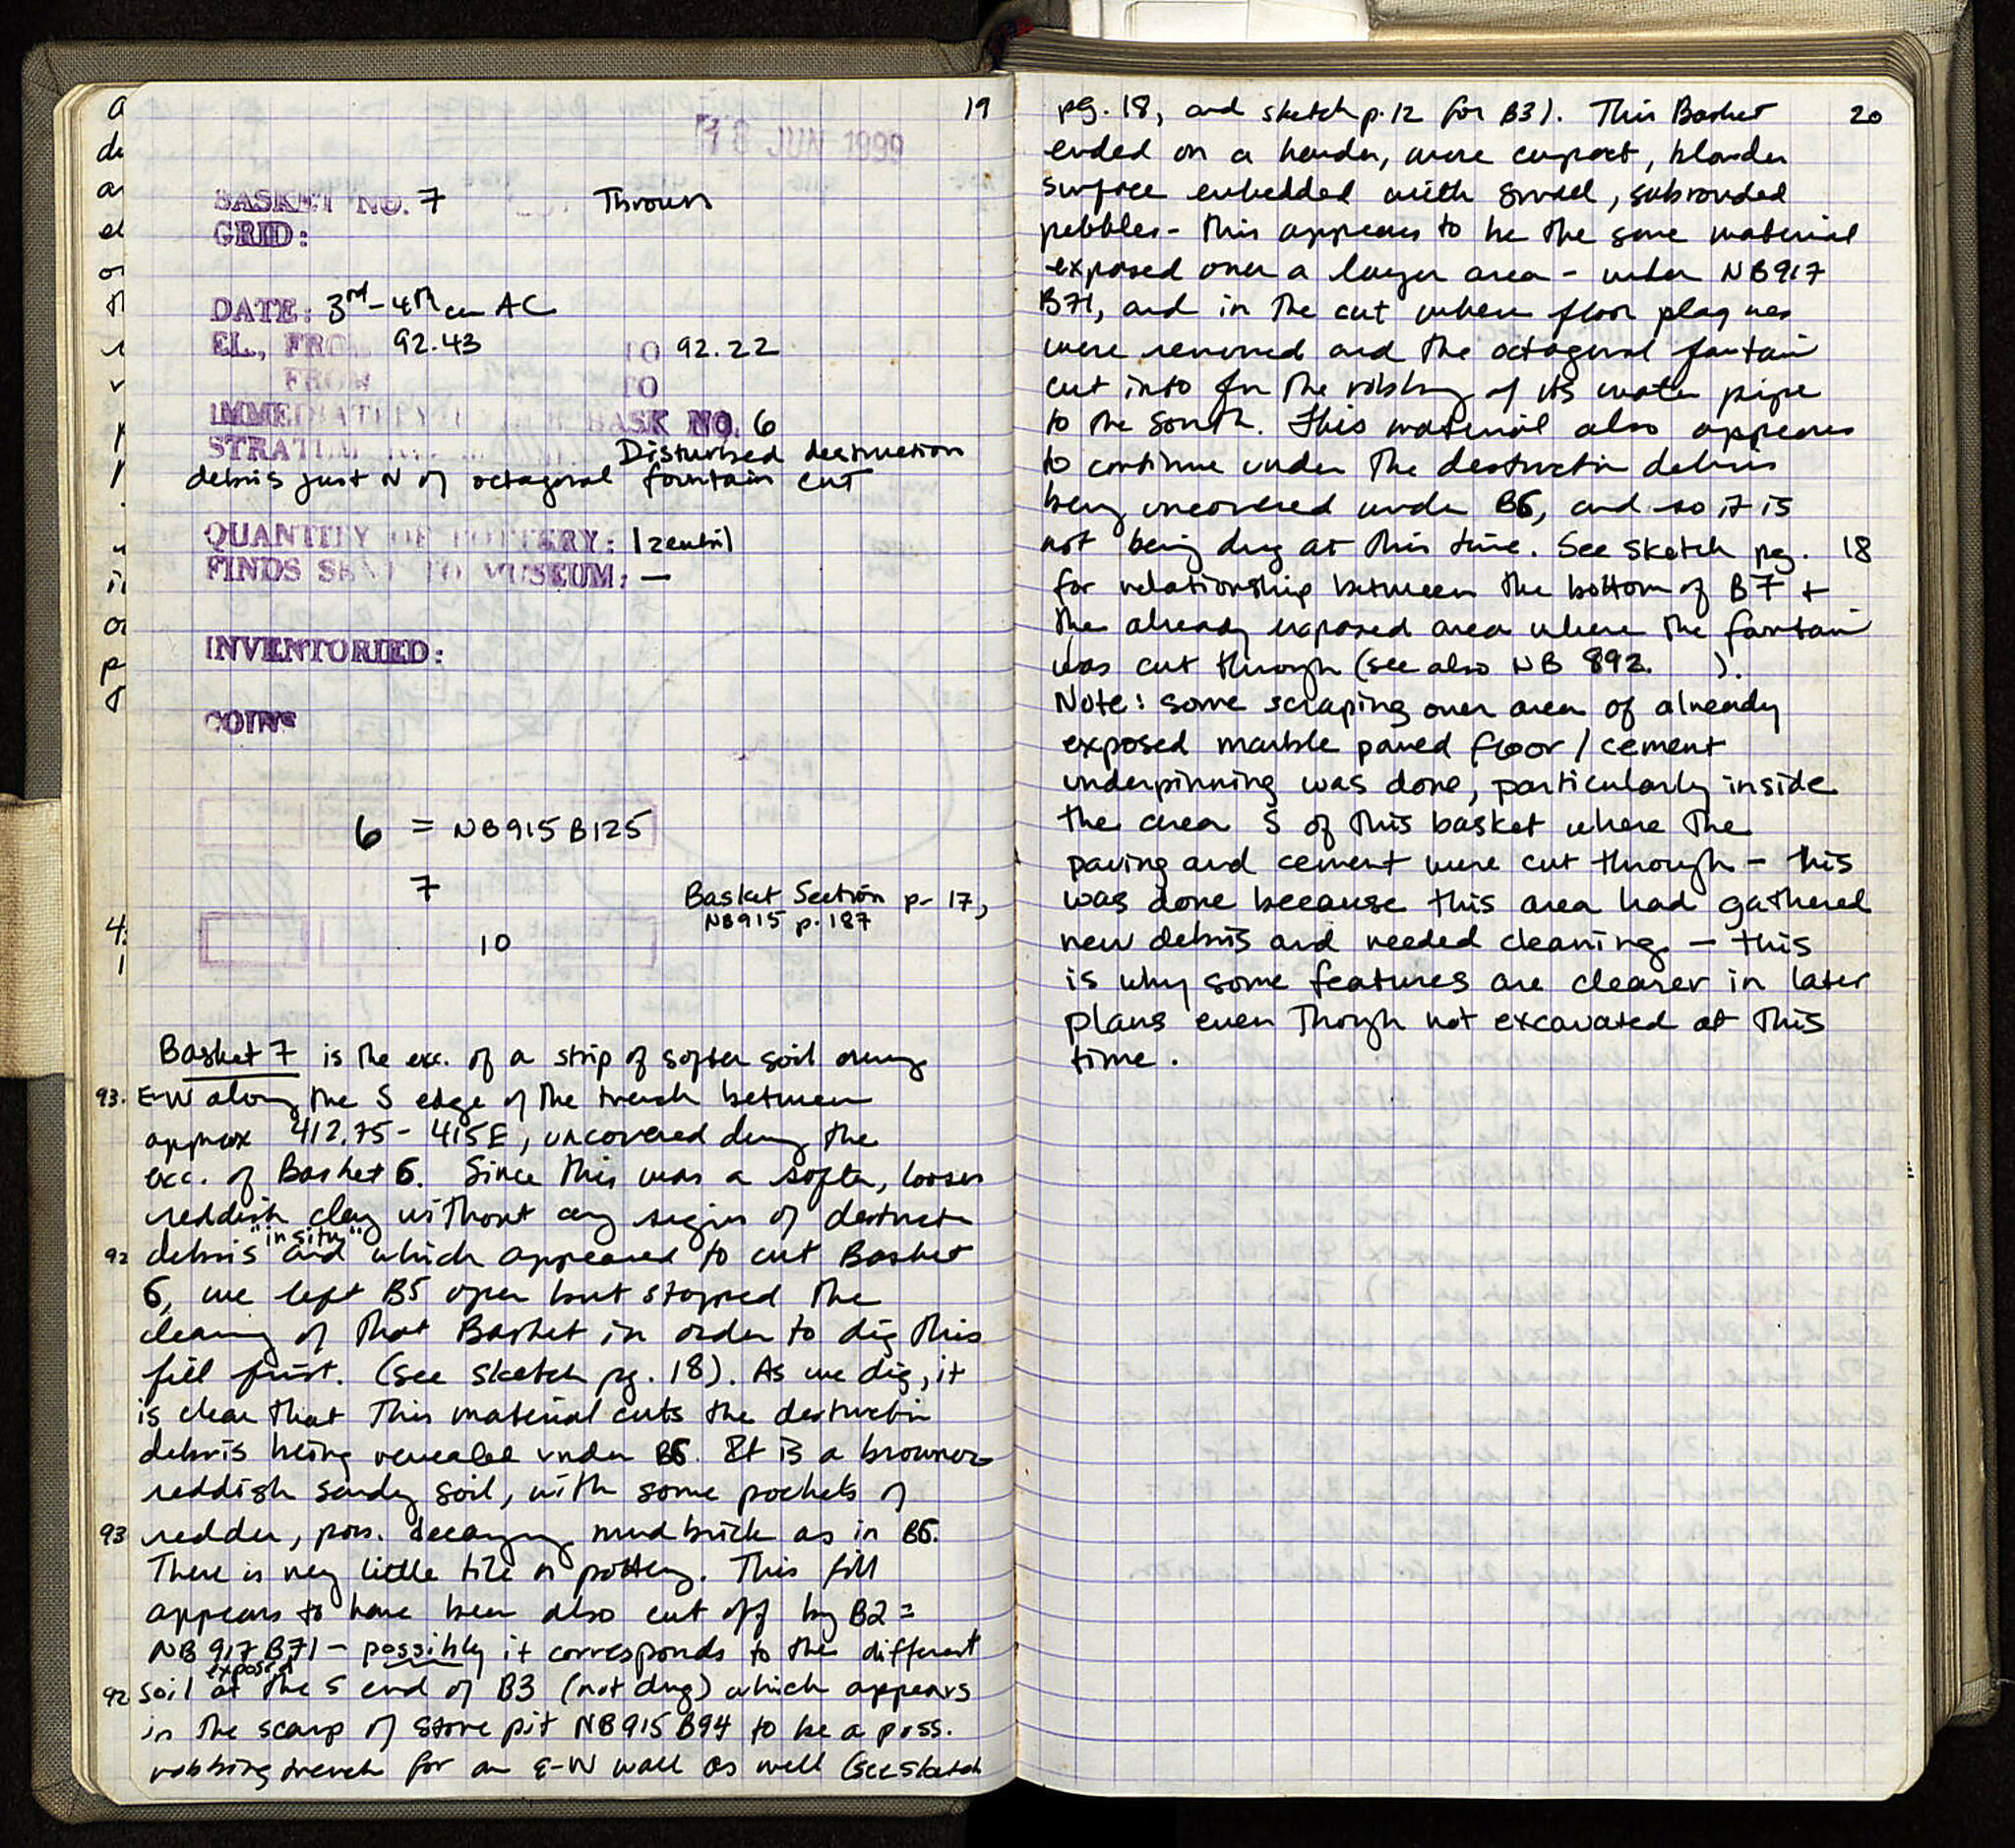 19
18 JUN 1999
BASKET NO. 7 Thrown
GRID:
DATE: 3rd - 4th cen AC
EL., FROM 92.43 TO 92.22
FROM TO
IMMEDIATELY BASK NO. 6
STRATUM Disturbed destruction
debris just N of octagonal fountain cut
QUANTITY OF POTTERY: 1 zembil
FINDS SENT TO MUSEUM: —
INVENTORIED:
COINS
6 = NB915 B125
7
Basket Section p. 17,
NB915 p. 187
10
Basket 7 is the exc. of a strip of softer soil
E-W along the S edge of the trench between
approx 412.75 - 415E, uncovered during the
exc. of Basket 6. Since this was a softer, looser
reddish clay without any signs of destruct
"in situ"
debris and which appeared to cut Basket
6, we left B5 open but stopped the
cleaning of that Basket in order to dig this
fill first. (see sketch pg. 18). As we dig, it
is clear that this material cuts the destructin
debris being revealed under B6. It is a browner
reddish sandy soil, with some pockets of
redder, poss. decaying mudbrick as in B6.
There is very little tile or pottery. This fill
appears to have been also cut off by B2 =
NB 917 B71 - possibly it corresponds to the different
exposed
soil at the S end of B3 (not dug) which appears
in the scarp of store pit NB915 B94 to be a poss.
robbing trench for an E-W wall as well (see sketch
20
pg. 18, and sketch p. 12 for B3). This Basket
ended on a harder, more compact, blonder
surface embedded with small, subrounded
pebbles - this appears to be the same material
exposed over a larger area - under NB917
B71, and in the cut where floor plaques
were removed and the octagonal fountain
cut into for the robbing of its water pipe
to the south. This material also appears
to continue under the destructin debris
being uncovered under B6, and so it is
not being dug at this time. See sketch pg. 18
for relationship between the bottom of B7 +
the already exposed area where the fountain
was cut through (see also NB 892. ).
Note: some scraping over area of already
exposed marble paved floor / cement
underpinning was done, particularly inside
the area S of this basket where the
paving and cement were cut through - this
was done because this area had gathered
new debris and needed cleaning - this
is why some features are clearer in later
plans even though not excavated at this
time.